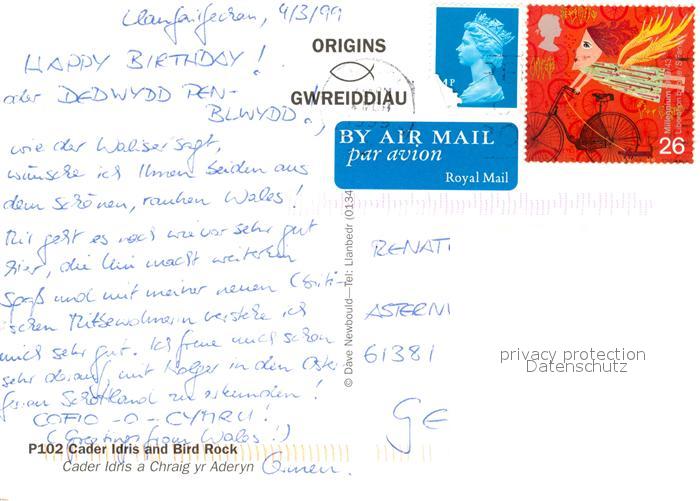 Llanfairfechan, 4/3/99
HAPPY BIRTHDAY!
oder DEDWYDD PEN-
BLWYDD!,
wie der Waliser sagt,
wünsche ich Ihnen beiden aus
dem schönen, rauhen Wales!
Mir geht es nach wie vor sehr gut
hier, die Uni macht weiterhin
Spaß und mit meiner neuen (briti-
schen Mitbewohnerin verstehe ich
mich sehr gut. Ich freue mich schon
sehr darauf, mit Holger in den Oster-
ferien Schottland zu erkunden!
COFIO-O-CYMRU!
(Greetings from Wales!)
P102 Cader Idris and Bird Rock
Cader Idris a Chraig yr Aderyn
ORIGINS
GWREIDDIAU
BY AIR MAIL
par avion
Royal Mail
© Dave Newbould—Tel: Llanbedr (0134
Millennium
26
RENATI
ASTERNI
61381
GE
privacy protection
Datenschutz